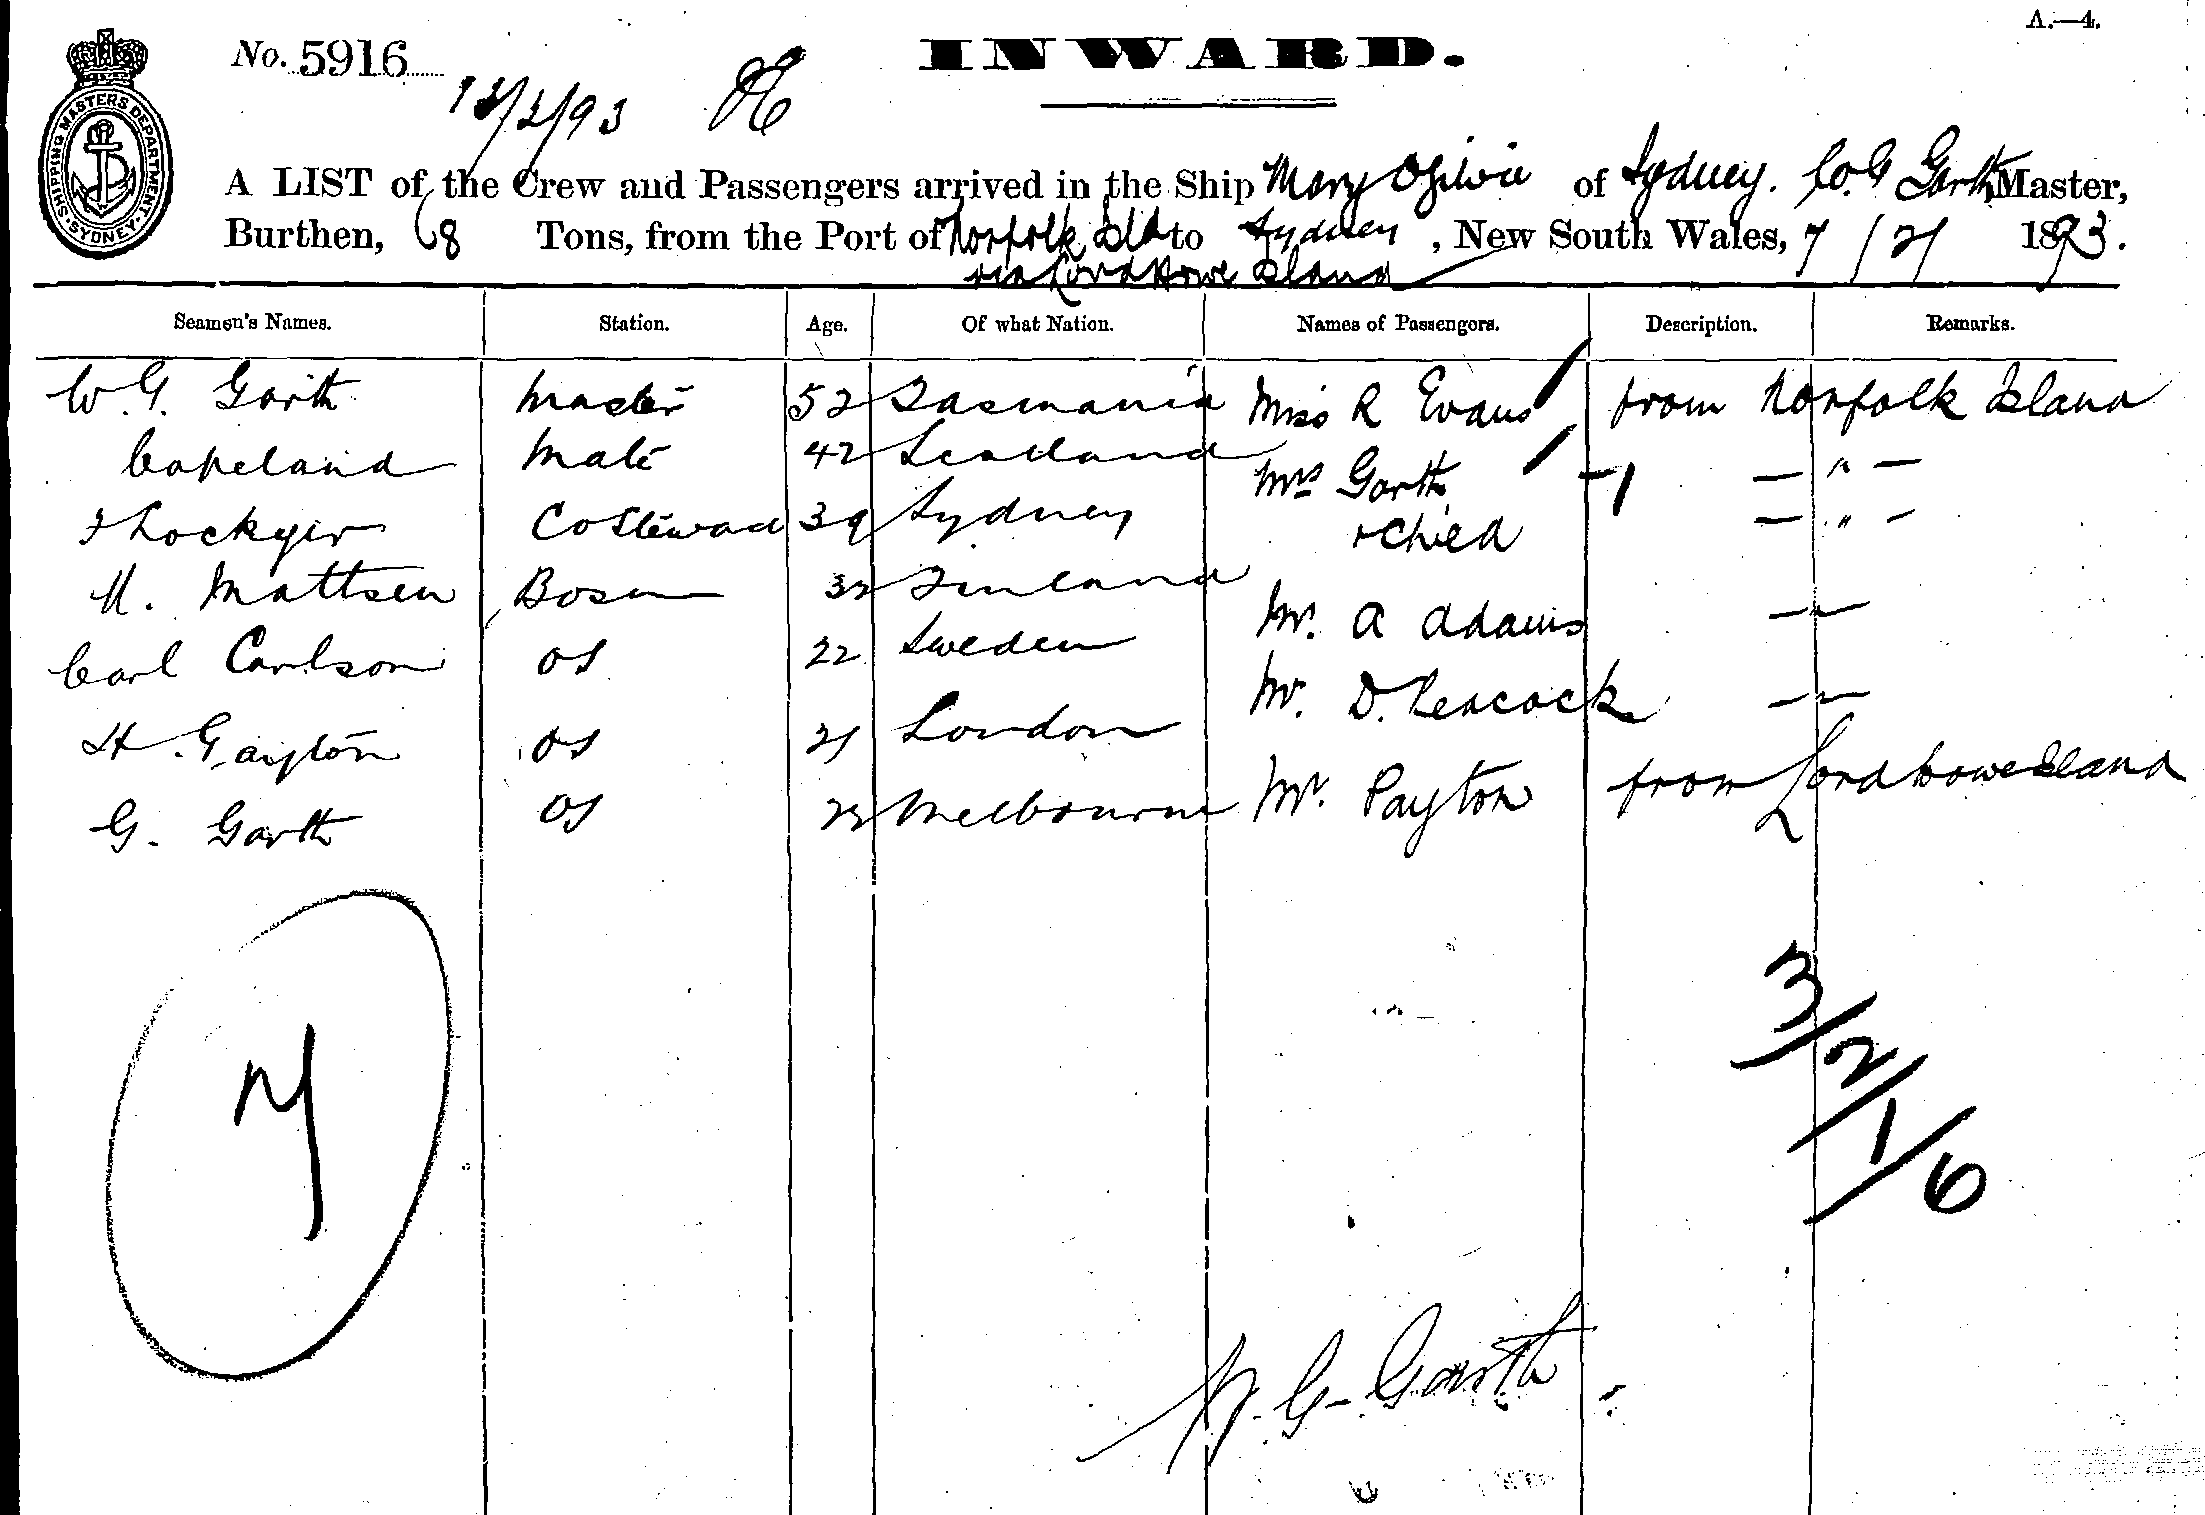 A.—4.
No. 5916
INWARD.
13/2/93
SHIPPING MASTERS DEPARTMENT. SYDNEY.
A LIST of the Crew and Passengers arrived in the Ship Mary Ogilvie of Sydney. W. G Garth Master,
Burthen, 68 Tons, from the Port of Norfolk Isld to Sydney, New South Wales, 7 / 2 / 1893.
via Lord Howe Island
Seamen's Names. Station. Age. Of what Nation. Names of Passengers. Description. Remarks.
W. G. Garth Master 52 Tasmania Miss R Evans from Norfolk Island
Copeland Mate 42 Scotland Mrs Garth 1 — " —
Lockyer Co Steward 39 Sydney + Child — " —
M. Mattsen Bosn 32 Finland Mr. A Adams — " —
Carl Carlson OS 22 Sweden Mr. D. Peacock — " —
H. Gayton OS 21 London
G. Garth OS 22 Melbourne Mr. Payton from Lord howe Island
7
3/2/1/6
W. G. Garth